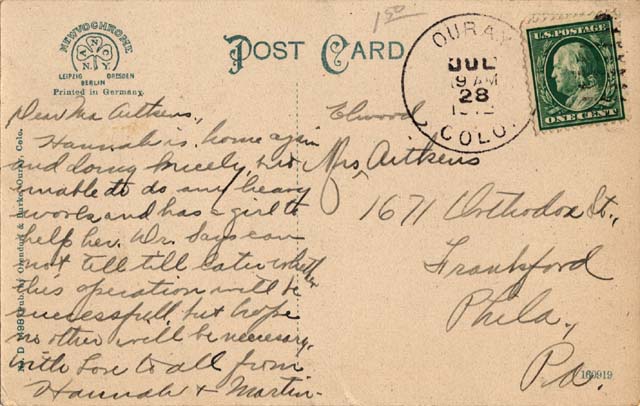 NEWVOCHROME
ANC
N.Y.
LEIPZIG DRESDEN
BERLIN
Printed in Germany.
POST CARD
1 50
OURAY
JUL
9 AM
28
COLO.
U.S. POSTAGE
ONE CENT
Dear Ma Aitkens,
Hannah is home again
and doing nicely, but
unable to do any heavy
work and has a girl to
help her. Dr. says can
not tell till later whether
this operation will be
successfull, but hope
no other will be necessary,
with love to all from
Hannah & Martin-
Elwood
Mrs Aitkens
1671 Orthodox St.,
Frankford
Phila,
Pa.
Pub. by Orendorf & Burke, Ouray, Colo.
160919